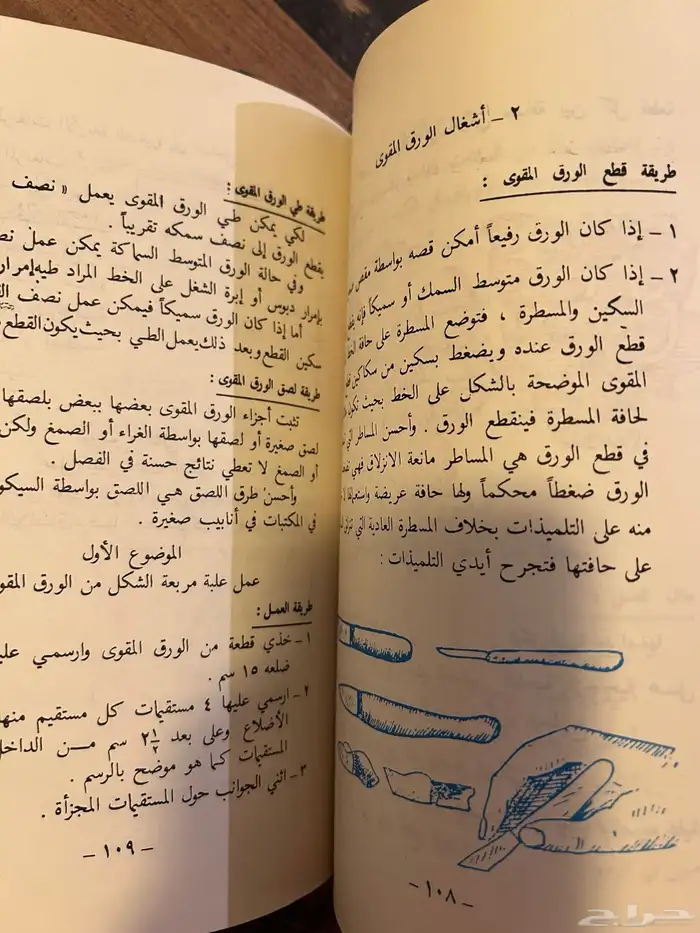 ٢ – أشغال الورق المقوى
طريقة قطع الورق المقوى :
١ – إذا كان الورق رفيعاً أمكن قصه بواسطة مقص
٢ – إذا كان الورق متوسط السمك أو سميكاً فإنه
السكين والمسطرة ، فتوضع المسطرة على حافة
قطع الورق عنده ويضغط بسكين من سكاكين
المقوى الموضحة بالشكل على الخط بحيث تكون
لحافة المسطرة فينقطع الورق . وأحسن المساطر التي
في قطع الورق هي المساطر مانعة الانزلاق فهي
الورق ضغطاً محكماً ولها حافة عريضة واستعمالها
منه على التلميذات بخلاف المسطرة العادية التي
على حافتها فتجرح أيدي التلميذات :
– ١٠٨ –
طريقة طي الورق المقوى :
لكي يمكن طي الورق المقوى يعمل « نصف
بقطع الورق إلى نصف سمكه تقريباً .
وفي حالة الورق المتوسط السماكة يمكن عمل
بإمرار دبوس أو إبرة الشغل على الخط المراد طيه
أما إذا كان الورق سميكاً فيمكن عمل نصف
سكين القطع وبعد ذلك يعمل الطي بحيث يكون القطع
طريقة لصق الورق المقوى :
تثبت أجزاء الورق المقوى بعضها ببعض بلصقها
لصق صغيرة أو لصقها بواسطة الغراء أو الصمغ ولكن
أو الصمغ لا تعطي نتائج حسنة في الفصل .
وأحسن طرق اللصق هي اللصق بواسطة
في المكتبات في أنابيب صغيرة .
الموضوع الأول
عمل علبة مربعة الشكل من الورق
طريقة العمل :
١ – خذي قطعة من الورق المقوى وارسمي
ضلعه ١٥ سم .
٢ – ارسمي عليها ٤ مستقيمات كل مستقيم
الأضلاع وعلى بعد ٢½ سم من
المستقيمات كما هو موضح بالرسم .
٣ – اثني الجوانب حول المستقيمات المجزأة .
– ١٠٩ –
حراج